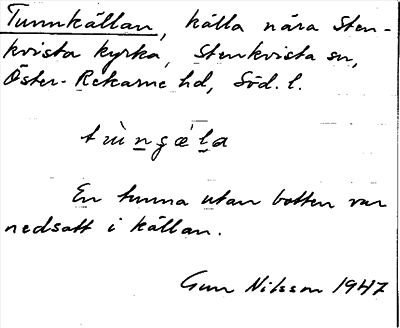 Tunnkällan, källa nära Sten-
kvista kyrka, Stenkvista sn,
Öster-Rekarne hd, Söd. l.
En tunna utan botten var
nedsatt i källan.
Gun Nilsson 1947